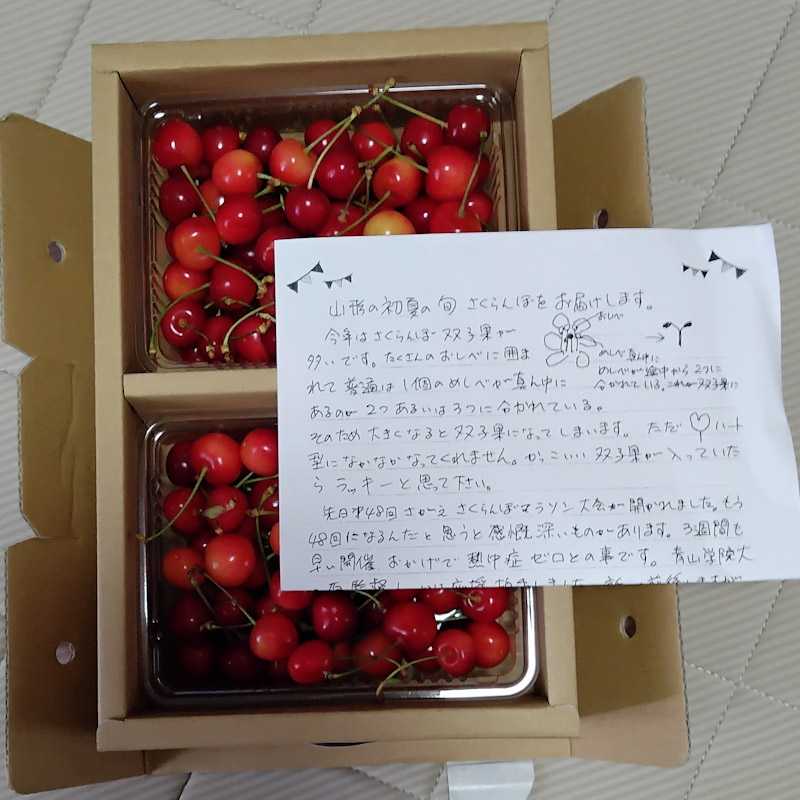 山形の初夏の旬 さくらんぼをお届けします。
今年はさくらんぼ 双子果が
多いです。たくさんのおしべに囲ま
れて 普通は1個のめしべが真ん中に
あるのが 2つあるいは3つに分かれている。
おしべ
めしべ真ん中に
めしべが途中から2つに
分かれている。これが双子果に
そのため大きくなると双子果になってしまいます。ただ ハート
型になかなかなってくれません。かっこいい 双子果が入っていた
ら ラッキーと思って下さい。
先日第48回さがえさくらんぼマラソン大会が開かれました。もう
48回になるんだと思うと感慨深いものがあります。3週間も
早い開催 おかげで熱中症ゼロとの事です。青山学院大